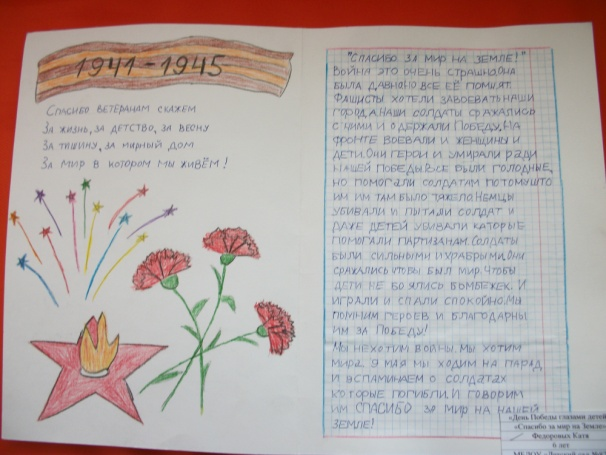 1941-1945
Спасибо ветеранам скажем
За жизнь, за детство, за весну
За тишину, за мирный дом
За мир в котором мы живём!
"Спасибо за мир на земле!"
Война это очень страшно. Она
была давно но все её помнят.
Фашисты хотели завоевать наши
города, а наши солдаты сражались
с ними и одержали Победу. На
фронте воевали и женщины и
дети. Они герои и умирали ради
нашей победы. Все были голодные,
но помогали солдатам потомушто
им им там было тяжело. Немцы
убивали и пытали солдат и
даже детей убивали каторые
помогали партизанам. Солдаты
были сильными и храбрыми. Они
сражались чтобы был мир. Чтобы
дети не боялись бомбежек. И
играли и спали спокойно. Мы
помним героев и благодарны
им за Победу!
Мы нехотим войны. Мы хотим
мира 9 мая мы ходим на парад
и вспоминаем о солдатах
которые погибли. И говорим
им СПАСИБО за мир на нашей
земле!
«День Победы глазами детей
«Спасибо за мир на Земле»
Федоровых Катя
6 лет